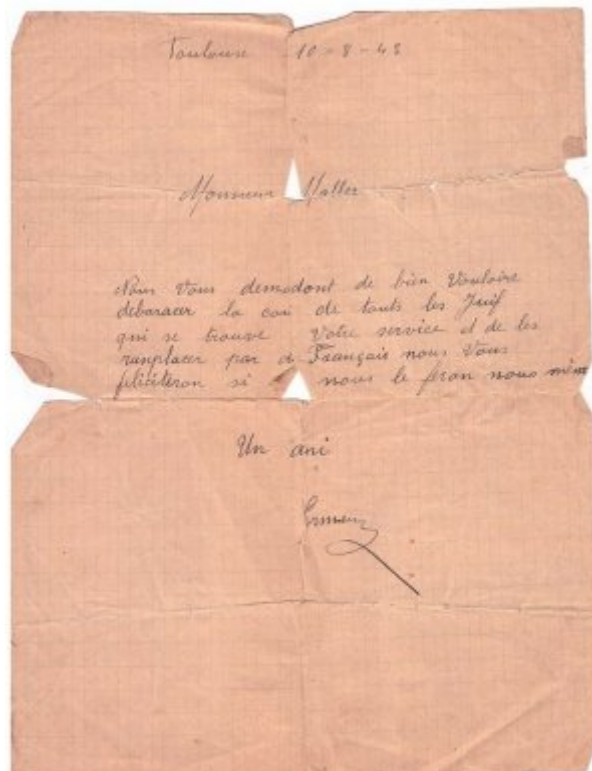 Toulouse 10-8-43
Monsieur Haller
Nous Vous demadont de bien Vouloire
debaracer la cou de touts les Juif
qui se trouve Votre service et de les
ranplacer par d Français nous Vous
féliciteron si nous le feron nous mêm
Un ami